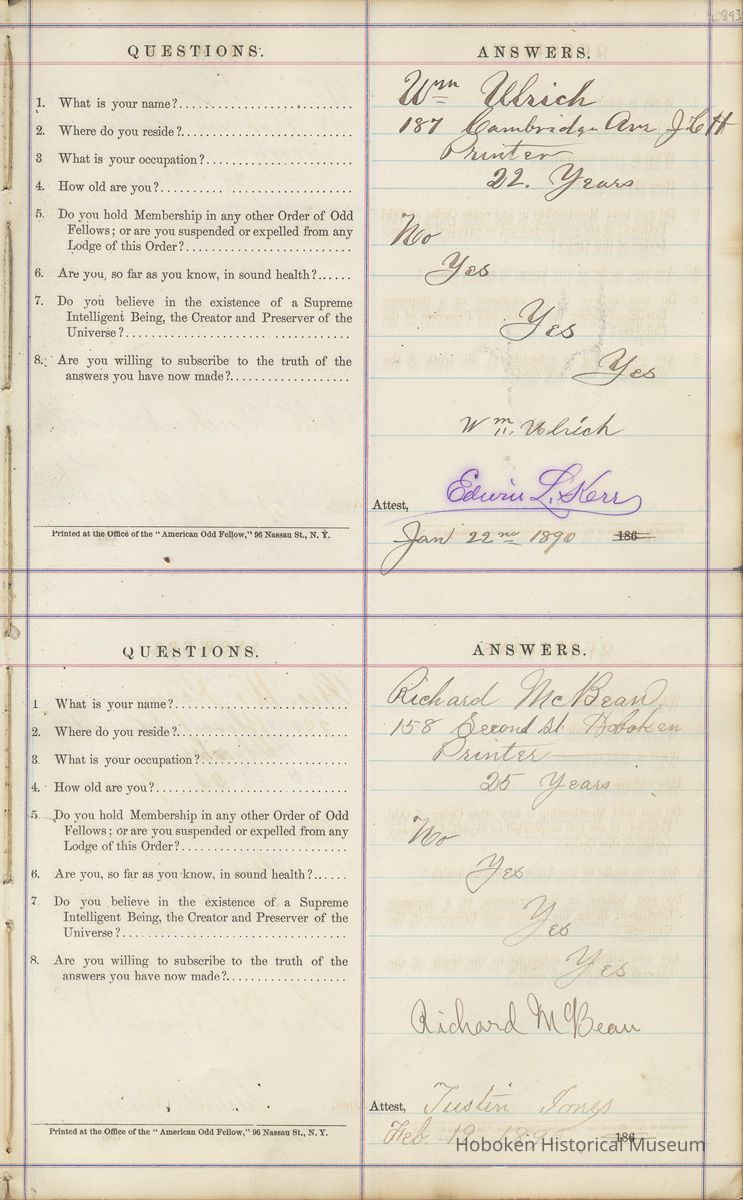 QUESTIONS. ANSWERS.
1. What is your name? Wmm Ulrich
2. Where do you reside? 187 Cambridge Ave J C H
3 What is your occupation? Printer
4. How old are you? 22. Years
5. Do you hold Membership in any other Order of Odd
Fellows; or are you suspended or expelled from any
Lodge of this Order? No
6. Are you, so far as you know, in sound health? Yes
7. Do you believe in the existence of a Supreme
Intelligent Being, the Creator and Preserver of the
Universe? Yes
8. Are you willing to subscribe to the truth of the
answers you have now made? Yes
Wm. Ulrich
Attest, Edwin L. Kerr
Printed at the Office of the "American Odd Fellow," 96 Nassau St., N. Y.
Jan 22nd 1890 186
QUESTIONS. ANSWERS.
1 What is your name? Richard McBean
2. Where do you reside? 158 Second St Hoboken
3. What is your occupation? Printer
4. How old are you? 25 Years
5. Do you hold Membership in any other Order of Odd
Fellows; or are you suspended or expelled from any
Lodge of this Order? No
6. Are you, so far as you know, in sound health? Yes
7 Do you believe in the existence of a Supreme
Intelligent Being, the Creator and Preserver of the
Universe? Yes
8. Are you willing to subscribe to the truth of the
answers you have now made? Yes
Richard McBean
Attest, Justin Jones
Printed at the Office of the "American Odd Fellow," 96 Nassau St., N. Y.
Feb. 19 186
Hoboken Historical Museum